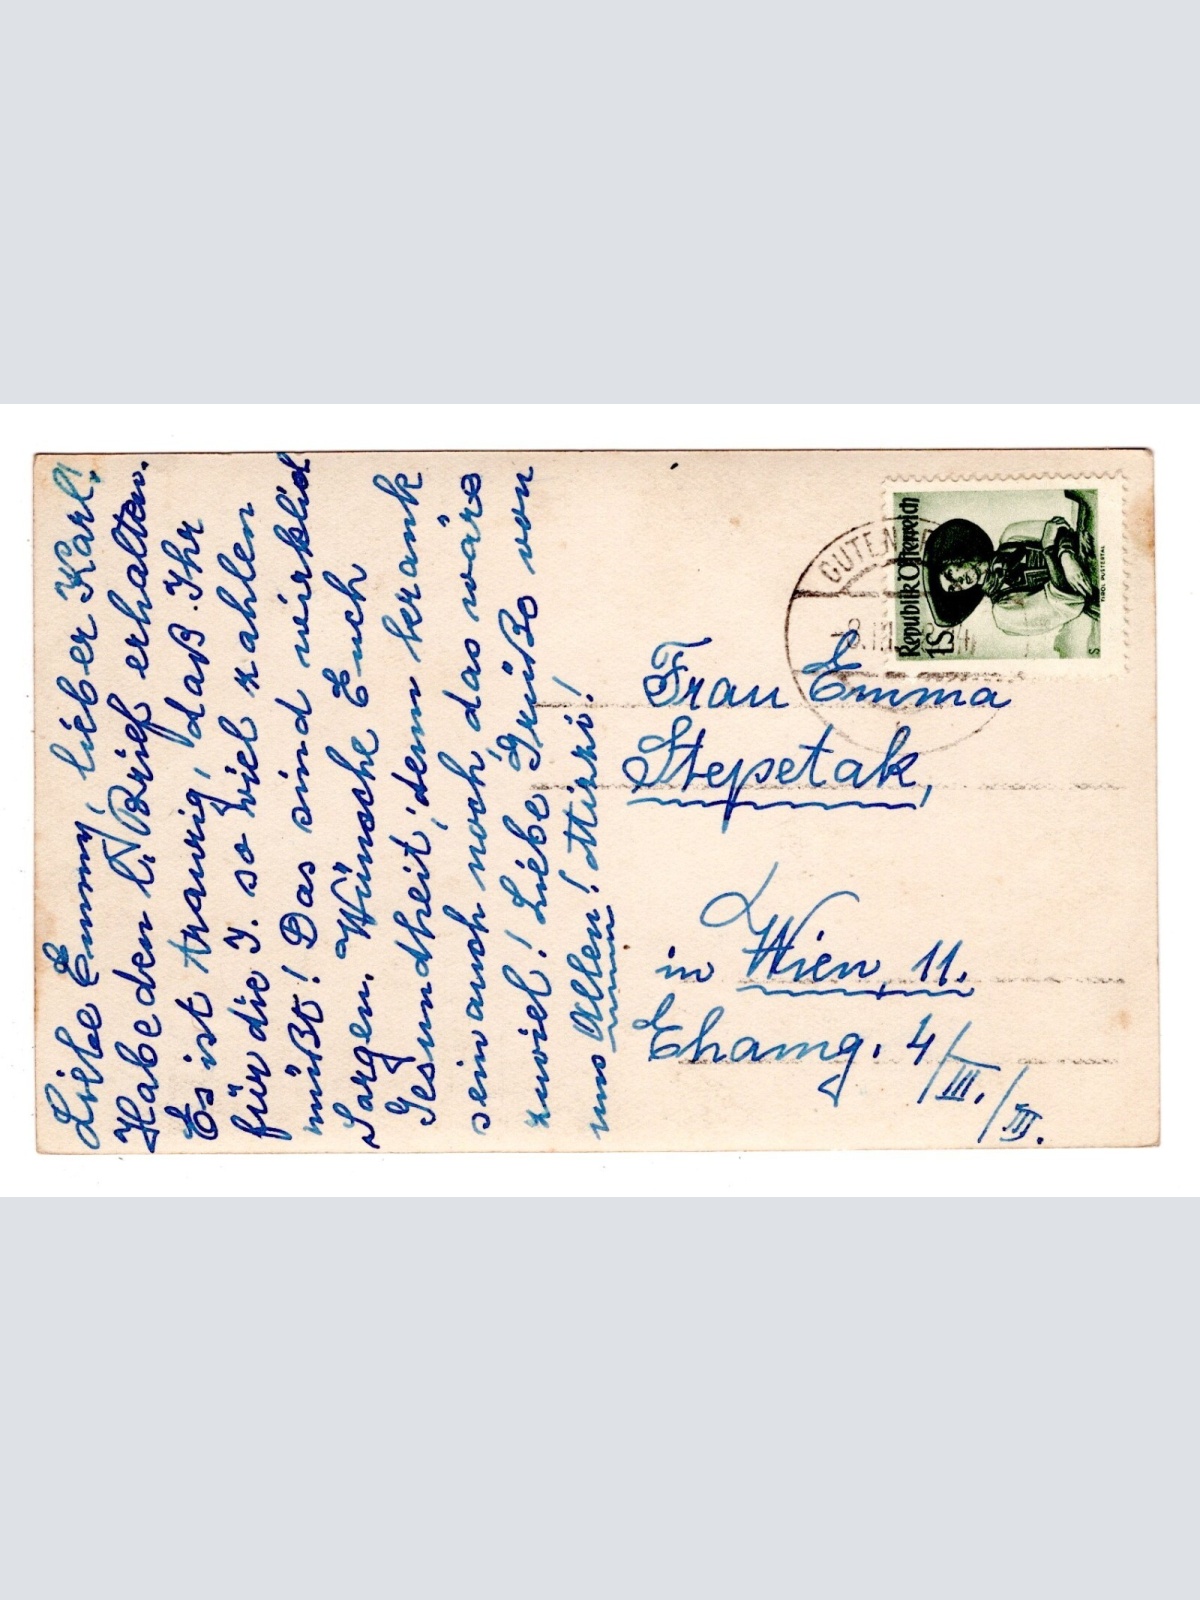 Liebe Emmy, lieber Karl!
Habe den l. Brief erhalten.
Es ist traurig, daß Ihr
für die I. so viel zahlen
müßt! Das sind wirklich
Sorgen. Wünsche Euch
Gesundheit, denn krank
sein auch noch, das wäre
zuviel! Liebe Grüße von
uns Allen! Mizzi!
Republik Österreich
1S
TIROL PUSTERTAL
GUTEN
Frau Emma
Stepetak,
in Wien, 11.
Ehamg. 4/III./